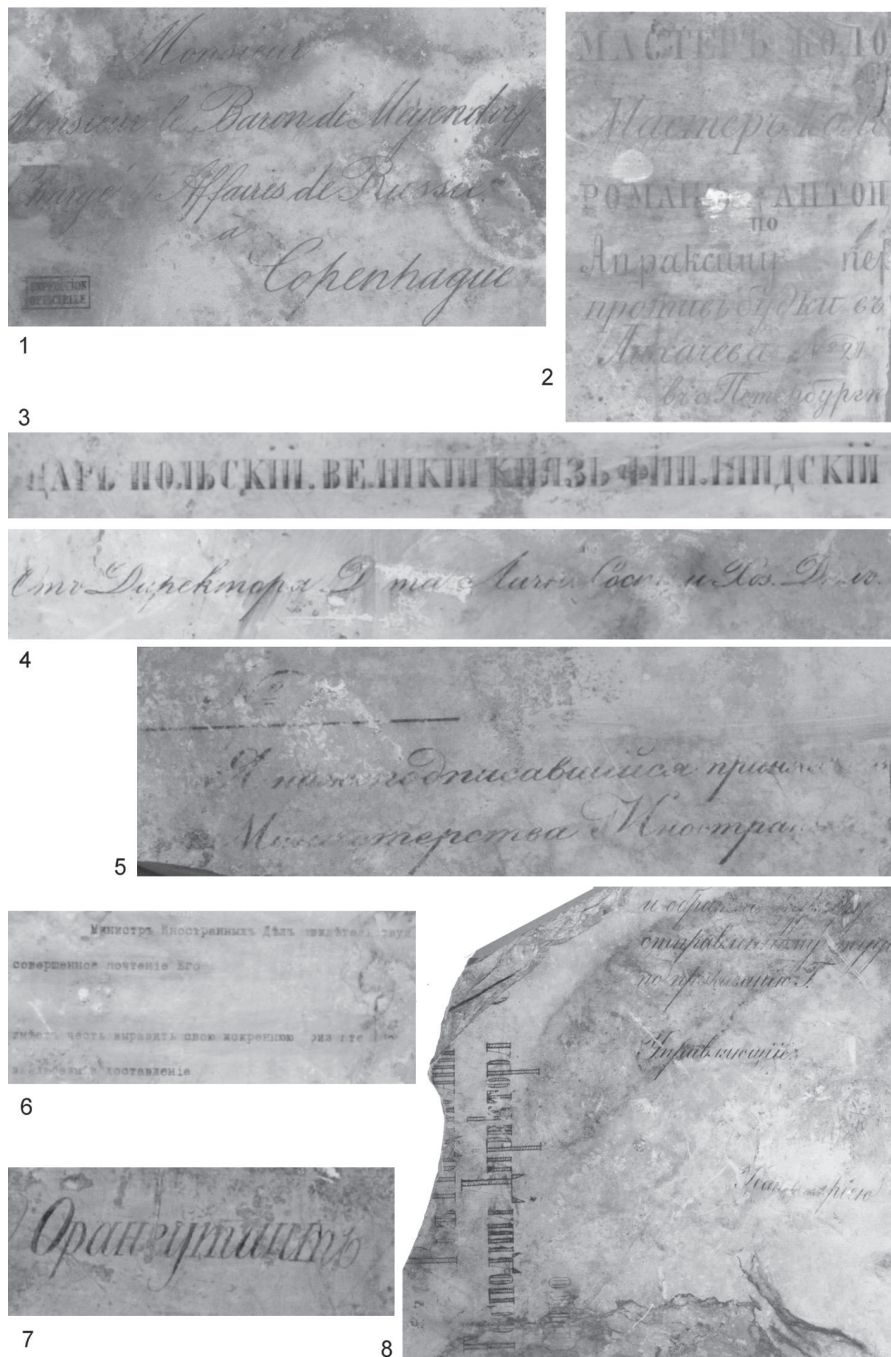 Monsieur
Monsieur le Baron de Meyendorff
Chargé d'Affaires de Russie
à
Copenhague
EXPEDITION
OFFICIELLE
1
МАСТЕРЪ КОЛО
Мастеръ коло
РОМАНЪ АНТОН
ПО
Апраксину пер
противъ будки въ
Лихачева №21
въ С. Петербургѣ
2
3
ЦАРЬ ПОЛЬСКІЙ. ВЕЛИКІЙ КНЯЗЬ ФИН.ЯНДСКІЙ
Отъ Директора Д та Личн. Сост. и Хоз. Дѣлъ.
4
Я нижеподписавшийся приня
Министерства Иностран
5
Министръ Иностранныхъ Дѣлъ свидѣтельствуя
совершенное почтеніе Его
имѣетъ честь выразить свою искреннюю
доставленіе
6
Орангутангъ
7
отправленному
по приказанію Г.
Управляющій
Господинъ Директора
8